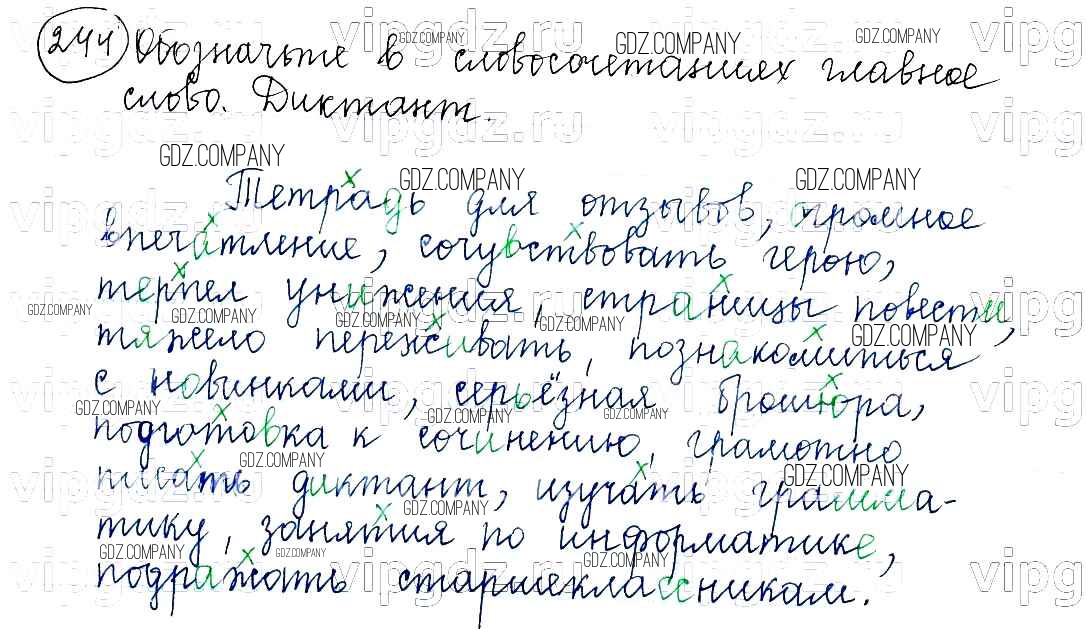 244 Обозначьте в словосочетаниях главное
слово. Диктант.
Тетрадь для отзывов, огромное
впечатление, сочувствовать герою,
терпел унижения, страницы повести,
тяжело переживать, познакомиться
с новинками, серьёзная брошюра,
подготовка к сочинению, грамотно
писать диктант, изучать грамма-
тику, занятия по информатике,
подражать старшеклассникам.
GDZ.COMPANY
vipgdz.ru